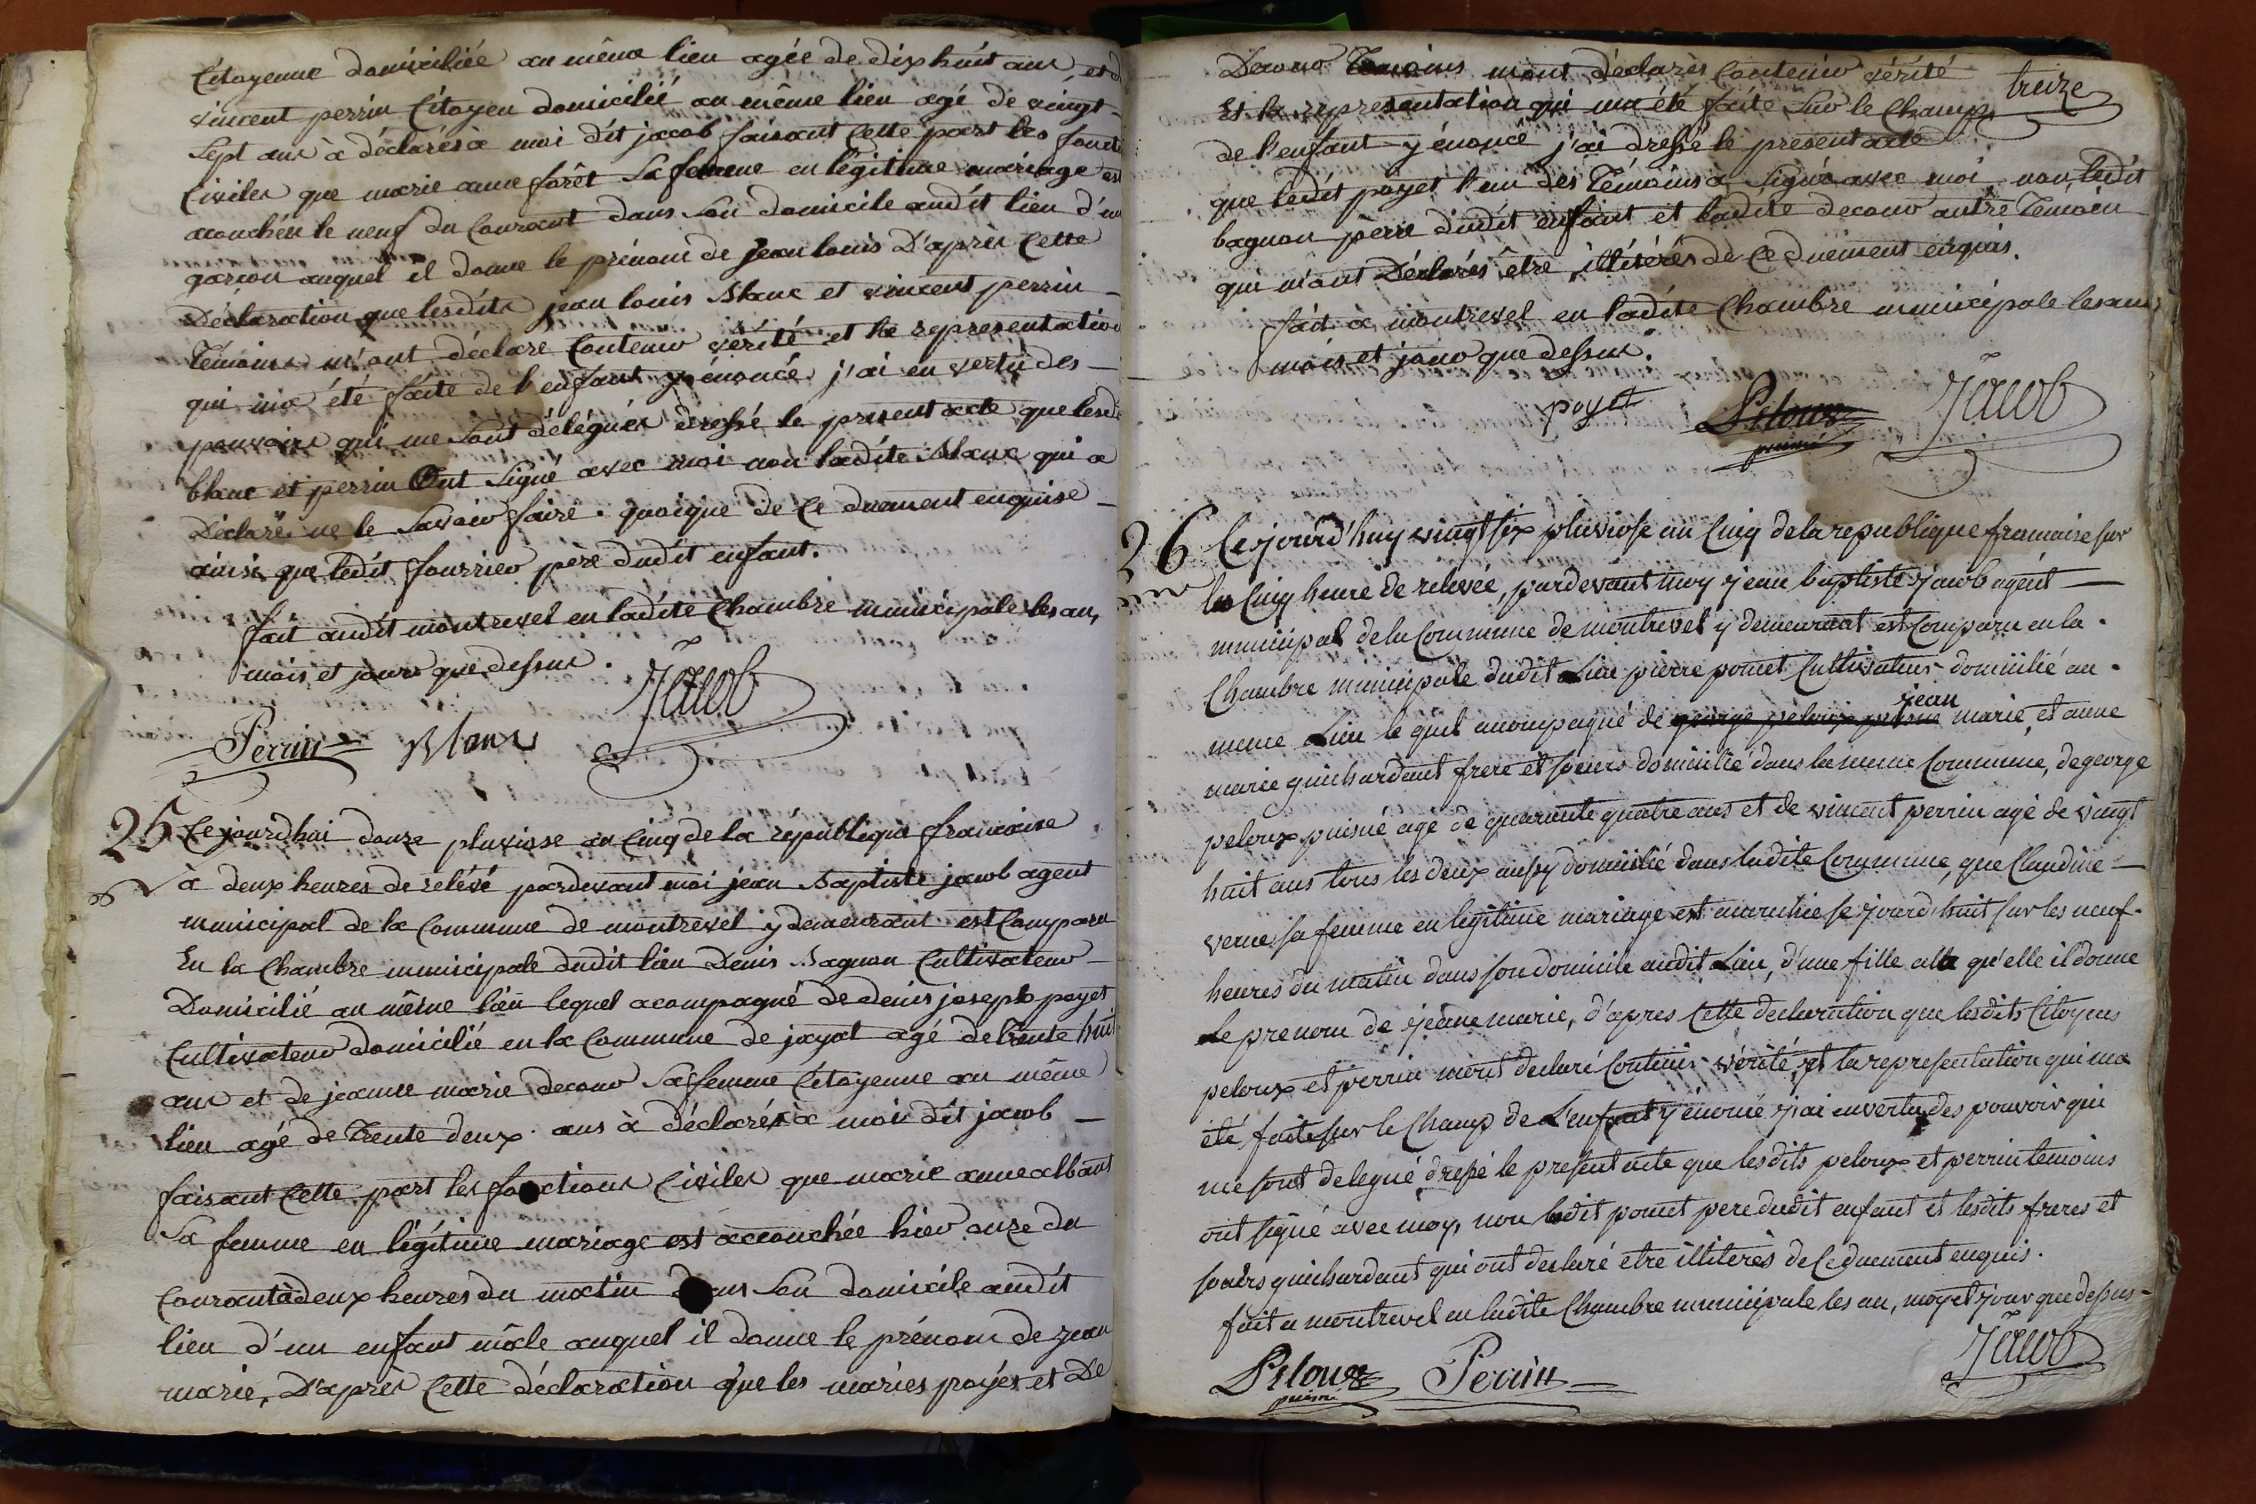 Citoyenne domiciliée au même lieu agée de dix huit ans, et de
vincent perrin Citoyen domicilié au même lieu agé de vingt
Sept ans à déclarés à moi dit jacob faisant Cette part les foncti
Civiles que marie anne forêt Sa femme en légitime mariage est
acouchée le neuf du Courant dans Son domicile audit lieu d'un
garcon auquel il donne le prénom de jean louis D'après Cette
Déclaration que lesdits jean louis Blanc et vincent perrin
Témoins m'ont déclare Contenir vérité et la representation
qui m'a été faite de l'enfant y énoncé j'ai en vertu des
pouvoirs qui me Sont délégués dressé le present acte que lesd
blanc et perrin Ont Signé avec moi non ladite Blanc qui a
Déclaré ne le Savoir faire. quoique de Ce duement enquise
ainsi que ledit fourrier père dudit enfant.
fait audit montrevel en ladite Chambre municipale les an,
mois et jours que dessus.
Jacob
Perrin Blanc
25 Cejourdhui douze pluviose an Cinq de la république francaise
à deux heures de relévé pardevant moi jean Baptiste jacob agent
municipal de la Commune de montrevel y demeurant est Comparu
En la Chambre municipale dudit lieu Denis Bagnon Cultivateur
Domicilié au même lieu lequel acompagné de denis joseph payet
Cultivateur domicilié en la Commune de jayat agé de trente huit
ans et de jeanne marie decour Sa femme Citoyenne au même
lieu agé de Trente deux ans à déclarés à moi dit jacob
faisant Cette part les fonctions Civiles que marie anne albant
Sa femme en légitime mariage est accouchée hier onze du
Courant à deux heures du matin dans Son domicile audit
lieu d'un enfant mâle auquel il donne le prénom de jean
marie, D'après Cette déclaration que les mariés payet et De
Decour Temoins m'ont déclarés Contenir vérité
treize
Et la representation qui ma été faite Sur le Champ
de l'enfant y énoncé j'ai dressé le present acte
que ledit payet l'un des Témoins a Signé avec moi non, ledit
bagnon père dudit enfant et ladite decour autre Temoin
qui m'ont Déclarés être illitérés de Ce duement enquis.
fait à montrevel en ladite Chambre municipale les an,
mois et jour que dessus.
payet Peloux Jacob
puiné
26 Cejourd'huy vingt six pluviose an Cinq de la republique francaise sur
les Cinq heure de relevée, pardevant moy jean baptiste jacob agent
municipal de la Commune de montrevel y demeurant est Comparu en la
Chambre municipale dudit Lieu pierre pomet Cultivateur domicilié au
jean
meme Lieu le quel acompagné de george peloux puisné marie, et anne
marie guichardant frere et soeurs domicilié dans la meme Commune, de george
peloux puisné agé de quarante quatre ans et de vincent perrin agé de vingt
huit ans tous les deux aussy domicilié dans ladite Commune, que Claudine
verne sa femme en legitime mariage est acouchée se jourd'huit sur les neuf
heures du matin dans son domicile audit Lieu, d'une fille alla qu'elle il donne
Le prenom de jeane marie, d'apres Cette declaration que lesdits Citoyens
peloux et perrin mont declaré Contenir vérité, et la representation qui ma
été faite sur le Champ de L'enfant y énoncé j'ai en vertu des pouvoir qui
me sont delegué dressé le present acte que lesdits peloux et perrin temoins
ont signé avec moy, non ledit pomet pere dudit enfant et lesdits freres et
soeurs guichardant qui ont declaré etre illiterés de Ce duement enquis.
fait a montrevel en ladite Chambre municipale les an, moy et jour que dessus
Peloux Perrin Jacob
puiné